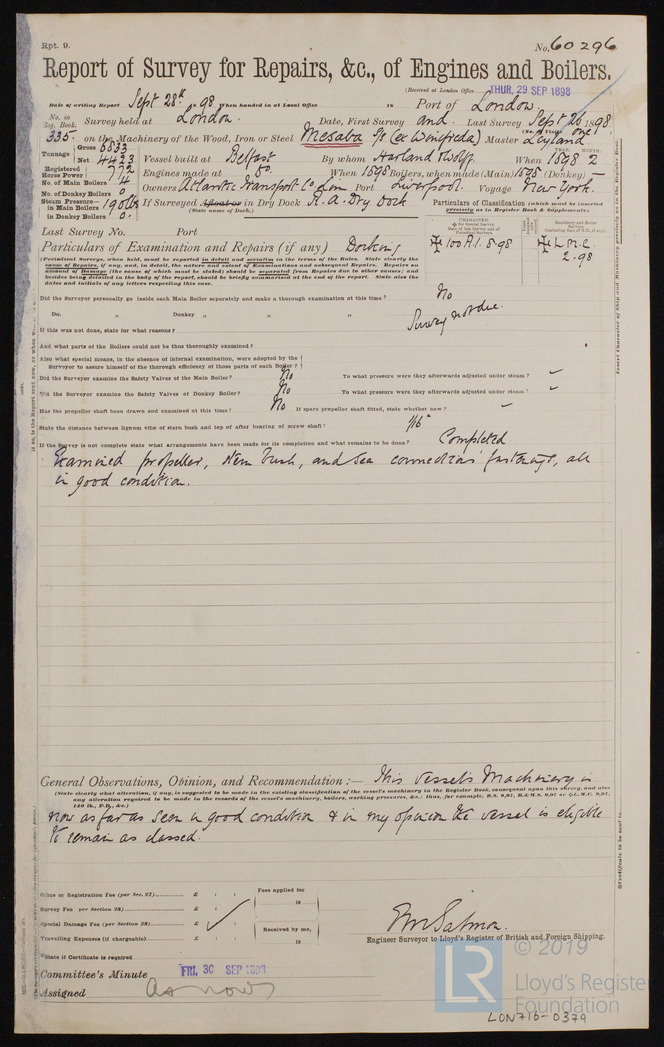 Rpt. 9.
No. 60296
Report of Survey for Repairs, &c., of Engines and Boilers.
(Received at London Office THUR, 29 SEP 1898
Date of writing Report Sept 28th 98 When handed in at Local Office 18 Port of London
No. in Reg. Book. Survey held at London. Date, First Survey and Last Survey Sept 26 1898
(No. of Visits one)
335. on the Machinery of the Wood, Iron or Steel Mesaba S/s (ex Winifreda) Master Leyland
Tonnage Gross 6833
Net 4423 Vessel built at Belfast By whom Harland & Wolff. When 1898 2
YEAR. MONTH.
Registered Horse Power 772 Engines made at Do. When 1898 Boilers, when made (Main) 1898 (Donkey) –
No. of Main Boilers 4 Owners Atlantic Transport Co Lim Port Liverpool. Voyage New York.
No. of Donkey Boilers 0
Steam Pressure— in Main Boilers 190 lbs If Surveyed Afloat or in Dry Dock R. A. Dry Dock
in Donkey Boilers 0. (State name of Dock.)
Particulars of Classification (which must be inserted precisely as in Register Book & Supplements).
Last Survey No. Port
CHARACTER.
100A1. 8.98
L.M.C. 2.98
Particulars of Examination and Repairs (if any) Docking
(Periodical Surveys, when held, must be reported in detail and seriatim in the terms of the Rules. State clearly the
cause of Repairs, if any, and, in detail, the nature and extent of Examinations and subsequent Repairs. Repairs on
account of Damage (the cause of which must be stated) should be separated from Repairs due to other causes; and
besides being detailed in the body of the report, should be briefly summarised at the end of the report. State also the
dates and initials of any letters respecting this case.
Did the Surveyor personally go inside each Main Boiler separately and make a thorough examination at this time? No
Do. „ Donkey „ „ „ Survey not due.
If this was not done, state for what reasons?
And what parts of the Boilers could not be thus thoroughly examined?
Also what special means, in the absence of internal examination, were adopted by the
Surveyor to assure himself of the thorough efficiency of those parts of each Boiler?
Did the Surveyor examine the Safety Valves of the Main Boiler? No To what pressure were they afterwards adjusted under steam?
Did the Surveyor examine the Safety Valves of Donkey Boiler? No To what pressure were they afterwards adjusted under steam?
Has the propeller shaft been drawn and examined at this time? No If spare propeller shaft fitted, state whether new?
State the distance between lignum vitæ of stern bush and top of after bearing of screw shaft? 1/16"
If the Survey is not complete state what arrangements have been made for its completion and what remains to be done? Completed
Examined propeller, stern bush, and sea connections fastenings, all
in good condition.
General Observations, Opinion, and Recommendation:— This vessel's Machinery is
(State clearly what alteration, if any, is suggested to be made in the existing classification of the vessel's machinery in the Register Book, consequent upon this survey, and also
any alteration required to be made in the records of the vessel's machinery, boilers, working pressures, &c.: thus, for example, B.S. 9,97, B.&M.S. 9,97 or L.M.C. 9,97,
140 lb., F.D., &c.)
now as far as seen in good condition & in my opinion the vessel is eligible
to remain as classed.
Office or Registration Fee (per Sec. 27) £
Survey Fee per Section 28) £
Special Damage Fee (per Section 28) £
Travelling Expenses (if chargeable) £
Fees applied for
18
Received by me,
18
State if Certificate is required
Engineer Surveyor to Lloyd's Register of British and Foreign Shipping.
Committee's Minute FRI. 30 SEP 1898
Assigned as now
© 2019
LR
Lloyd's Register
Foundation
LON716-0379